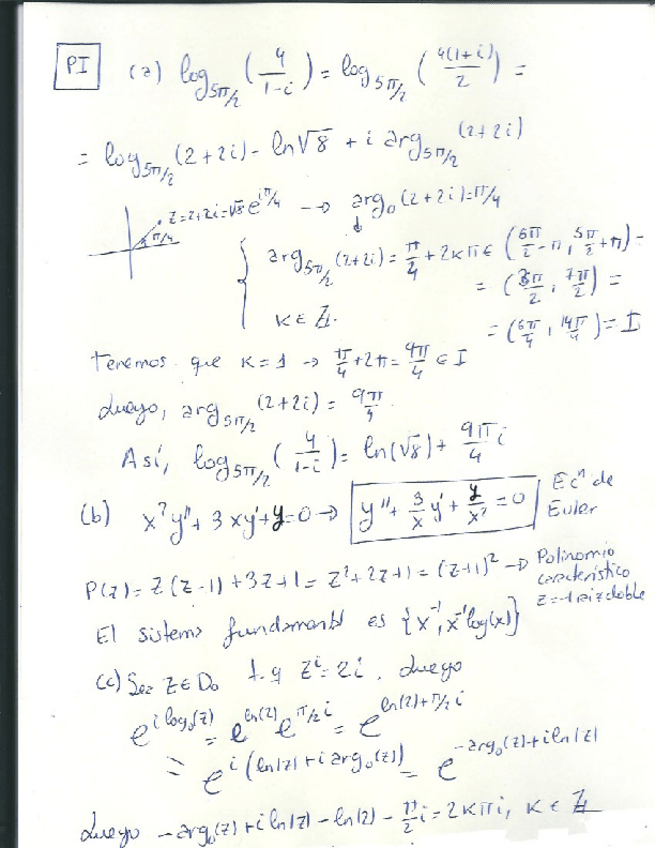 P1 (a) log_{5π/2} (4/(1-i)) = log_{5π/2} (4(1+i)/2) =
= log_{5π/2} (2+2i) = ln√8 + i arg_{5π/2} (2+2i)
z=2+2i=√8 e^{iπ/4} → arg_0 (2+2i)=π/4
π/4
arg_{5π/2} (2+2i) = π/4 + 2kπ ∈ (5π/2 - π, 5π/2 + π) =
= (3π/2, 7π/2) =
k ∈ ℤ.
= (6π/4, 14π/4) = I
Tenemos que k=1 → π/4 + 2π = 9π/4 ∈ I
Luego, arg_{5π/2} (2+2i) = 9π/4.
Así, log_{5π/2} (4/(1-i)) = ln(√8) + 9π/4 i
(b) x²y''+3xy'+y=0 → y''+ 3/x y' + y/x² = 0 Ecⁿ de
Euler
P(z)= z(z-1)+3z+1= z²+2z+1= (z+1)² → Polinomio
característico
z=-1 raiz doble
El sistema fundamental es {x⁻¹, x⁻¹log(x)}
(c) Sea z∈D₀ t.q z^i=2i. Luego
e^{i log_0(z)} = e^{ln(2)} e^{π/2 i} = e^{ln(2)+π/2 i}
= e^{i(ln|z|+i arg_0(z))} = e^{-arg_0(z)+i ln|z|}
Luego -arg_0(z)+i ln|z| - ln(2) - π/2 i = 2kπi, k ∈ ℤ